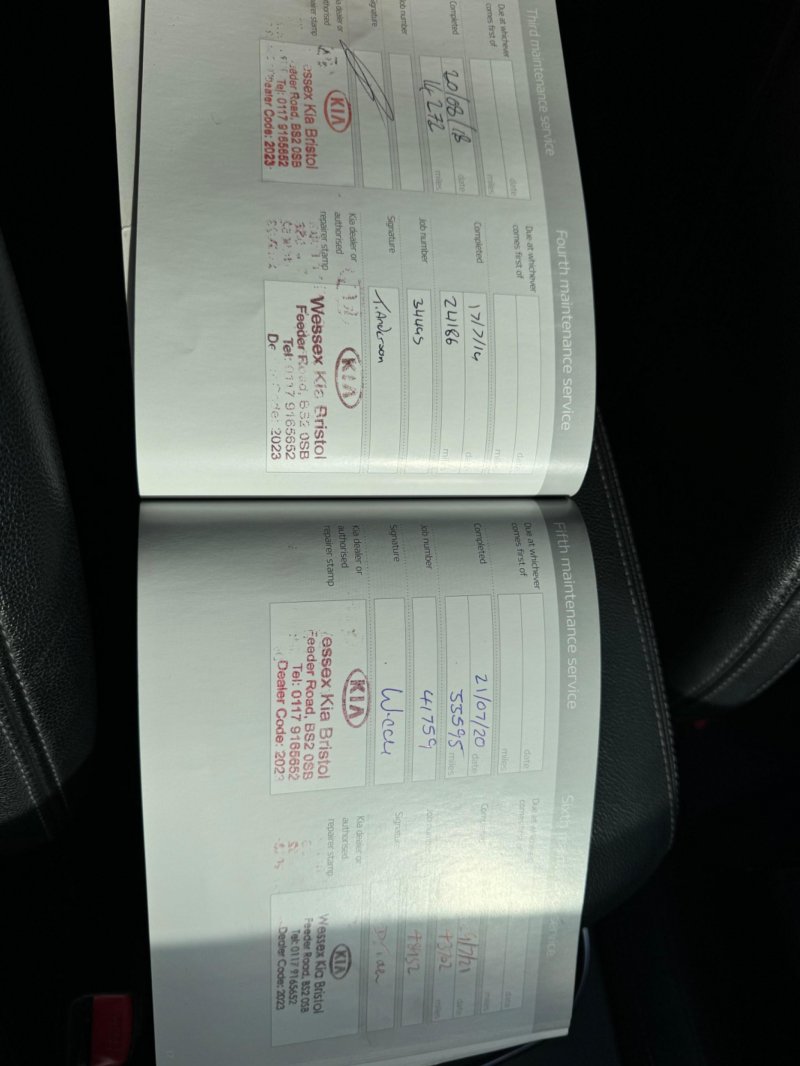 Third maintenance service
Due at whichever
comes first of
date
miles
Completed
20/08/18
date
14272
miles
Job number
Signature
Kia dealer or
authorised
repairer stamp
KIA
Wessex Kia Bristol
Feeder Road, BS2 0SB
Tel: 0117 9165652
Dealer Code: 2023
Fourth maintenance service
Due at whichever
comes first of
date
miles
Completed
17/7/19
date
24186
miles
Job number
34495
Signature
T. Anderson
Kia dealer or
authorised
repairer stamp
KIA
Wessex Kia Bristol
Feeder Road, BS2 0SB
Tel: 0117 9165652
2023
Fifth maintenance service
Due at whichever
comes first of
date
miles
Completed
21/07/20
date
33595
miles
Job number
41759
Signature
Kia dealer or
authorised
repairer stamp
KIA
Wessex Kia Bristol
Feeder Road, BS2 0SB
Tel: 0117 9165652
Dealer Code: 2023
Sixth maintenance service
Due at whichever
comes first of
date
miles
Completed
date
miles
Job number
Signature
Kia dealer or
authorised
repairer stamp
KIA
Wessex Kia Bristol
Feeder Road, BS2 0SB
Tel: 0117 9165652
Dealer Code: 2023